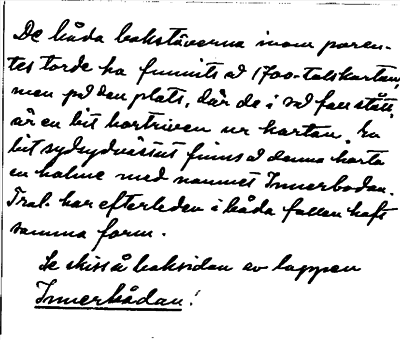 De båda bokstäverna inom paren-
tes torde ha funnits å 1700-talskartan,
men på den plats, där de i så fall stått,
är en bit bortriven ur kartan. En
bit sydsydvästut finns å denna karta
en holme med namnet Innerbodan.
Trol. har efterleden i båda fallen haft
samma form.
Se skiss å baksidan av lappen
Innerbådan!